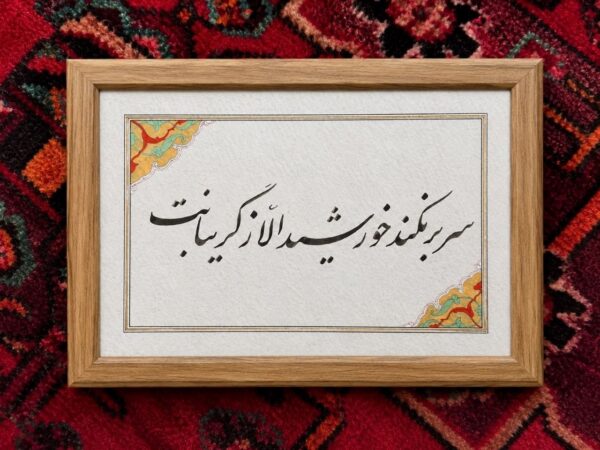 سر بر نکند خورشید الّا ز گریبانت